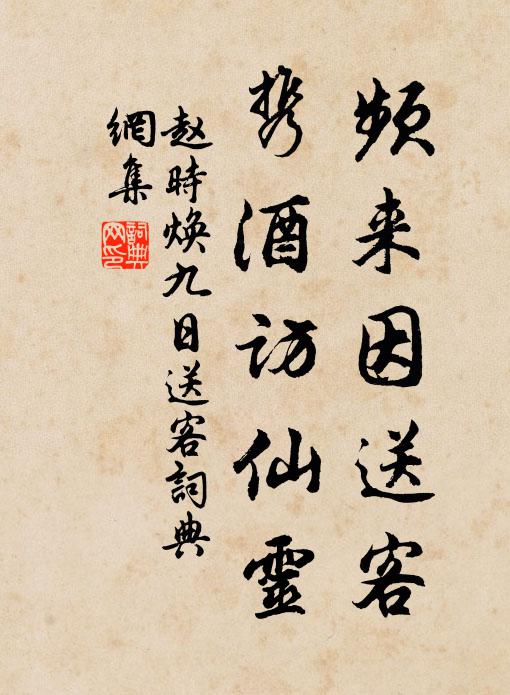 频来因送客
携酒访仙靈
赵時焕九日送客詞典
網集
詞典網印